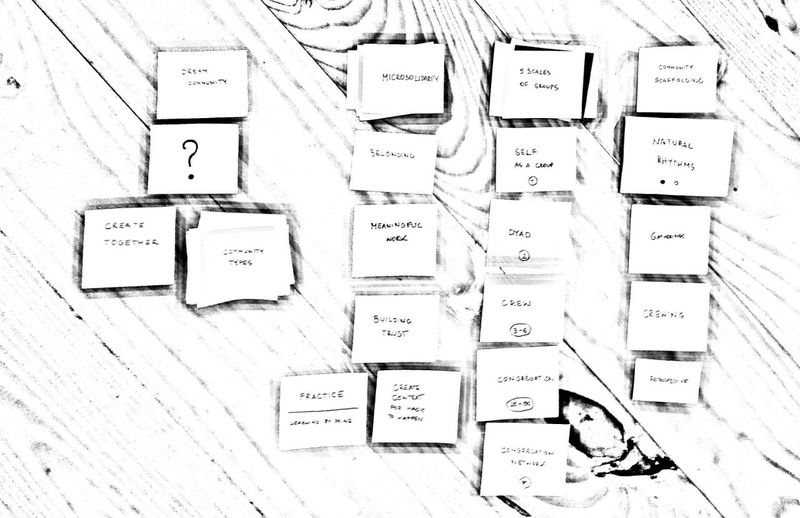 DREAM
COMMUNITY
?
CREATE
TOGETHER
COMMUNITY
TYPES
MICROSOLIDARITY
BELONGING
MEANINGFUL
WORK
BUILDING
TRUST
PRACTICE
LEARNING BY DOING
CREATE
CONTEXT
FOR MAGIC
TO HAPPEN
5 SCALES
OF GROUPS
SELF
AS A GROUP
DYAD
2
CREW
3-6
CONGREGATION
CONGREGATION
NETWORK
COMMUNITY
SCAFFOLDING
NATURAL
RHYTHMS
GATHERING
CREWING
RETROSPECTIVE